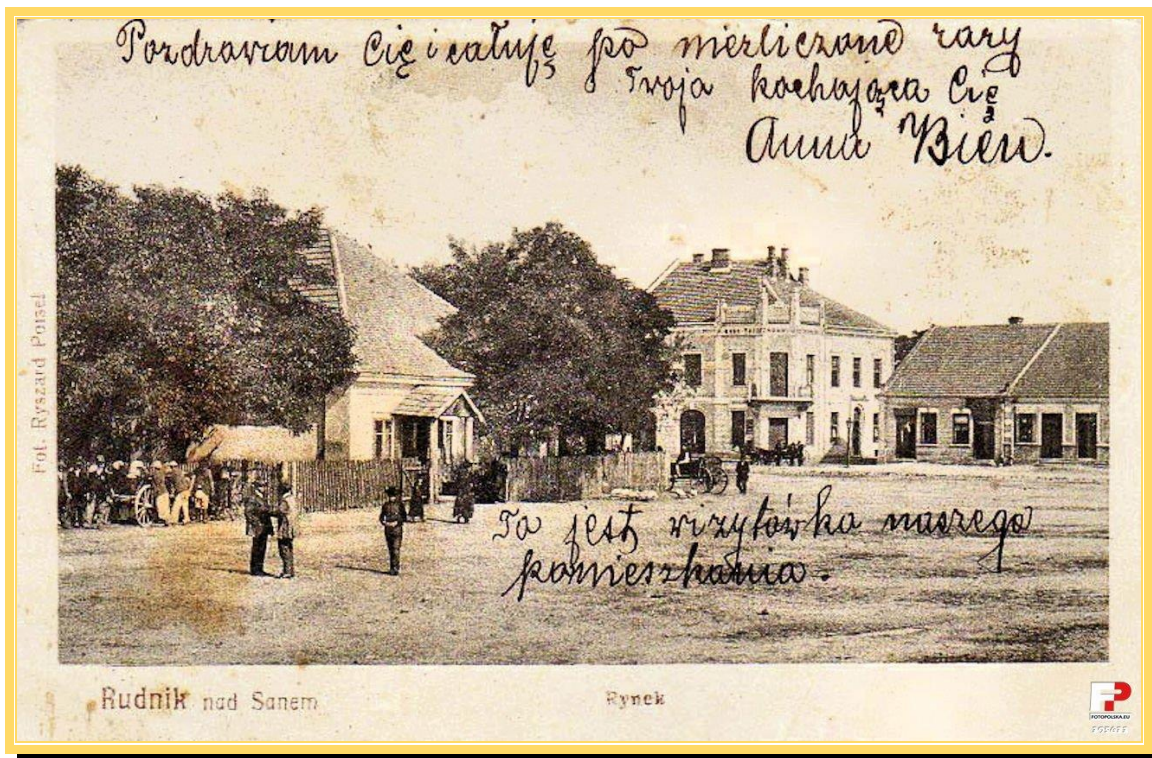 Pozdrawiam Cię i całuję po niezliczone razy
Twoja kochająca Cię
Anna Bień.
Fot. Ryszard Poisel
To jest wizytówka naszego
pomieszkania.
Rudnik nad Sanem
Rynek
FP
FOTOPOLSKA.EU